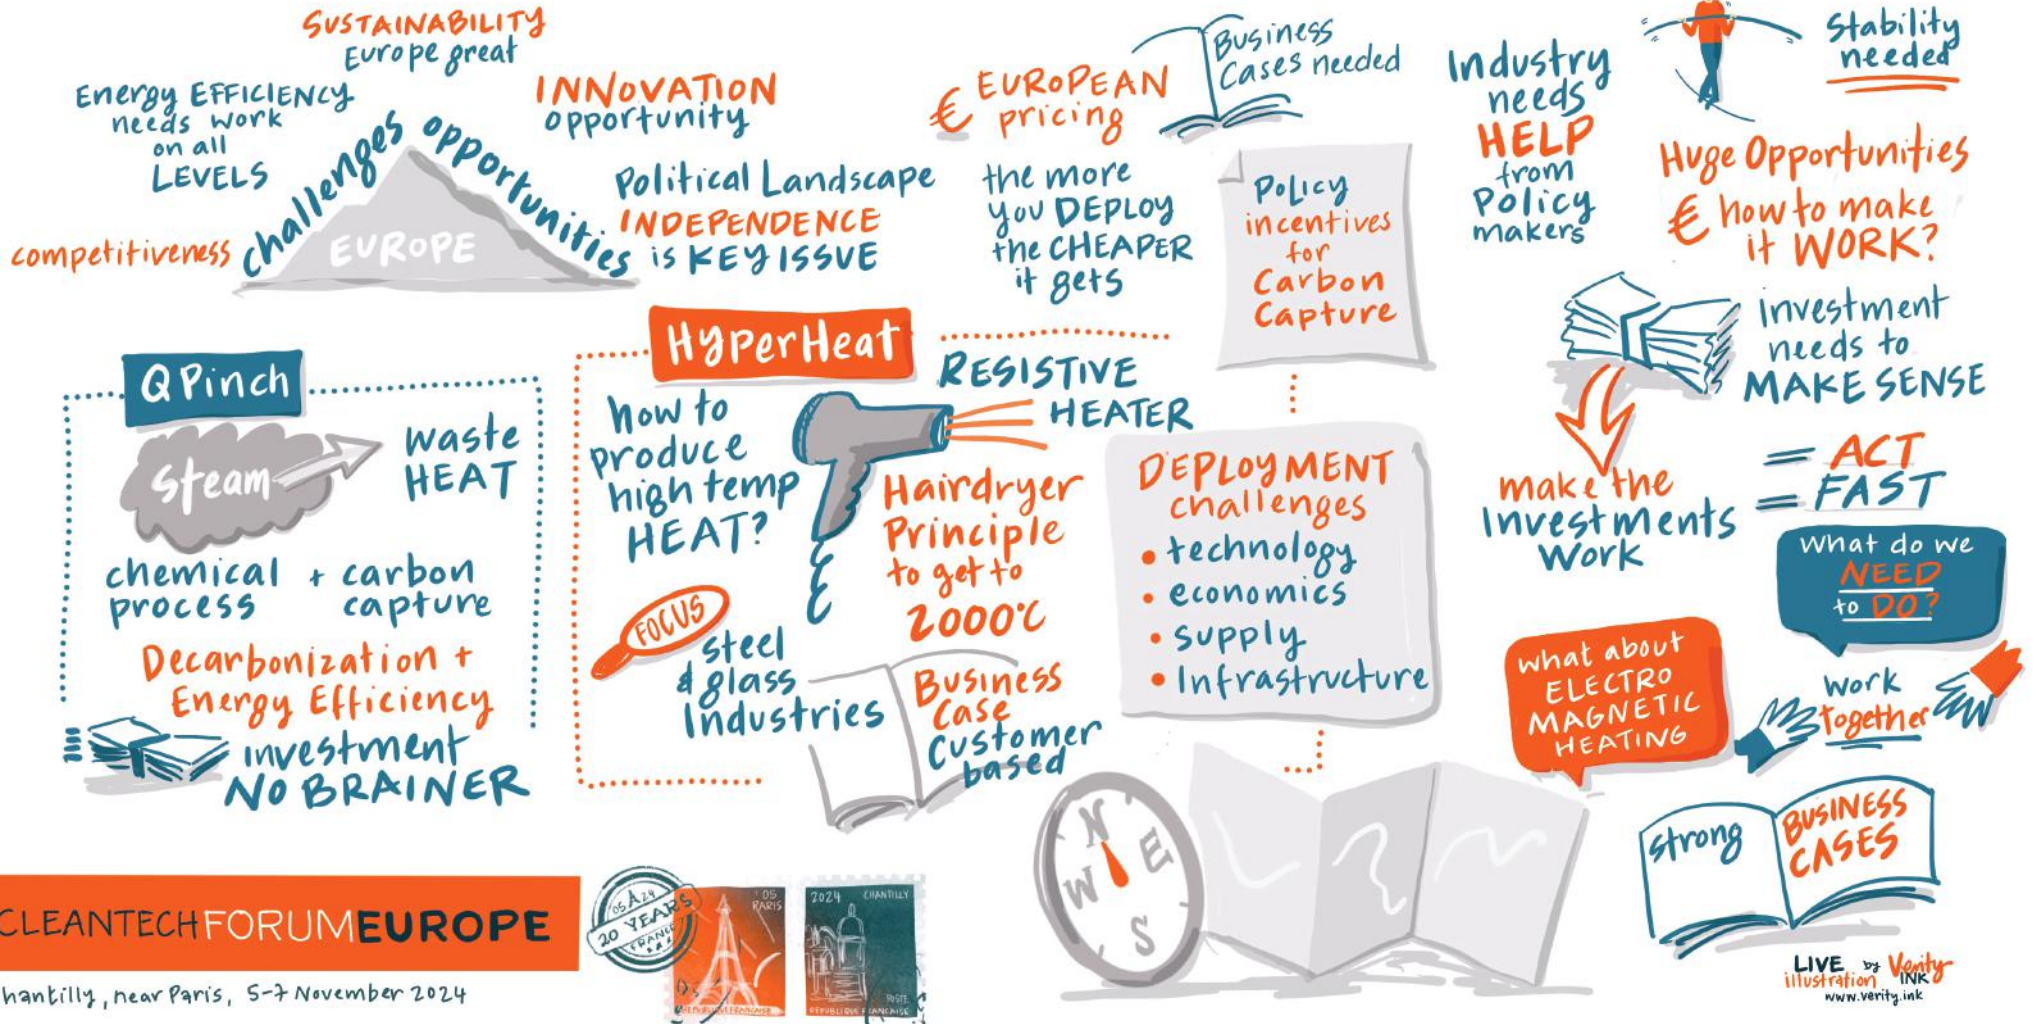 SUSTAINABILITY
Europe great
Energy EFFICIENCY
needs work
on all
LEVELS
competitiveness
challenges
opportunities
EUROPE
INNOVATION
opportunity
Political Landscape
INDEPENDENCE
is KEY ISSUE
€ EUROPEAN
pricing
the more
you DEPLOY
the CHEAPER
it gets
Business
Cases needed
Policy
incentives
for
Carbon
Capture
Industry
needs
HELP
from
Policy
makers
Stability
needed
Huge Opportunities
€ how to make
it WORK?
investment
needs to
MAKE SENSE
make the
Investments
Work
= ACT
= FAST
What do we
NEED
to DO?
What about
ELECTRO
MAGNETIC
HEATING
Work
together
Strong
BUSINESS
CASES
Q Pinch
Steam
waste
HEAT
chemical + carbon
process capture
Decarbonization +
Energy Efficiency
investment
NO BRAINER
HyperHeat
RESISTIVE
HEATER
how to
produce
high temp
HEAT?
Hairdryer
Principle
to get to
2000°C
FOCUS
Steel
& glass
Industries
Business
Case
Customer
based
DEPLOYMENT
challenges
• technology
• economics
• supply
• Infrastructure
N
E
S
W
CLEANTECH FORUM EUROPE
hantilly, near Paris, 5-7 November 2024
20 YEARS
FRANCE
05
PARIS
2024 CHANTILLY
POSTE
REPUBLIQUE FRANCAISE
REPUBLIQUE FRANCAISE
LIVE by Verity
illustration INK
www.verity.ink